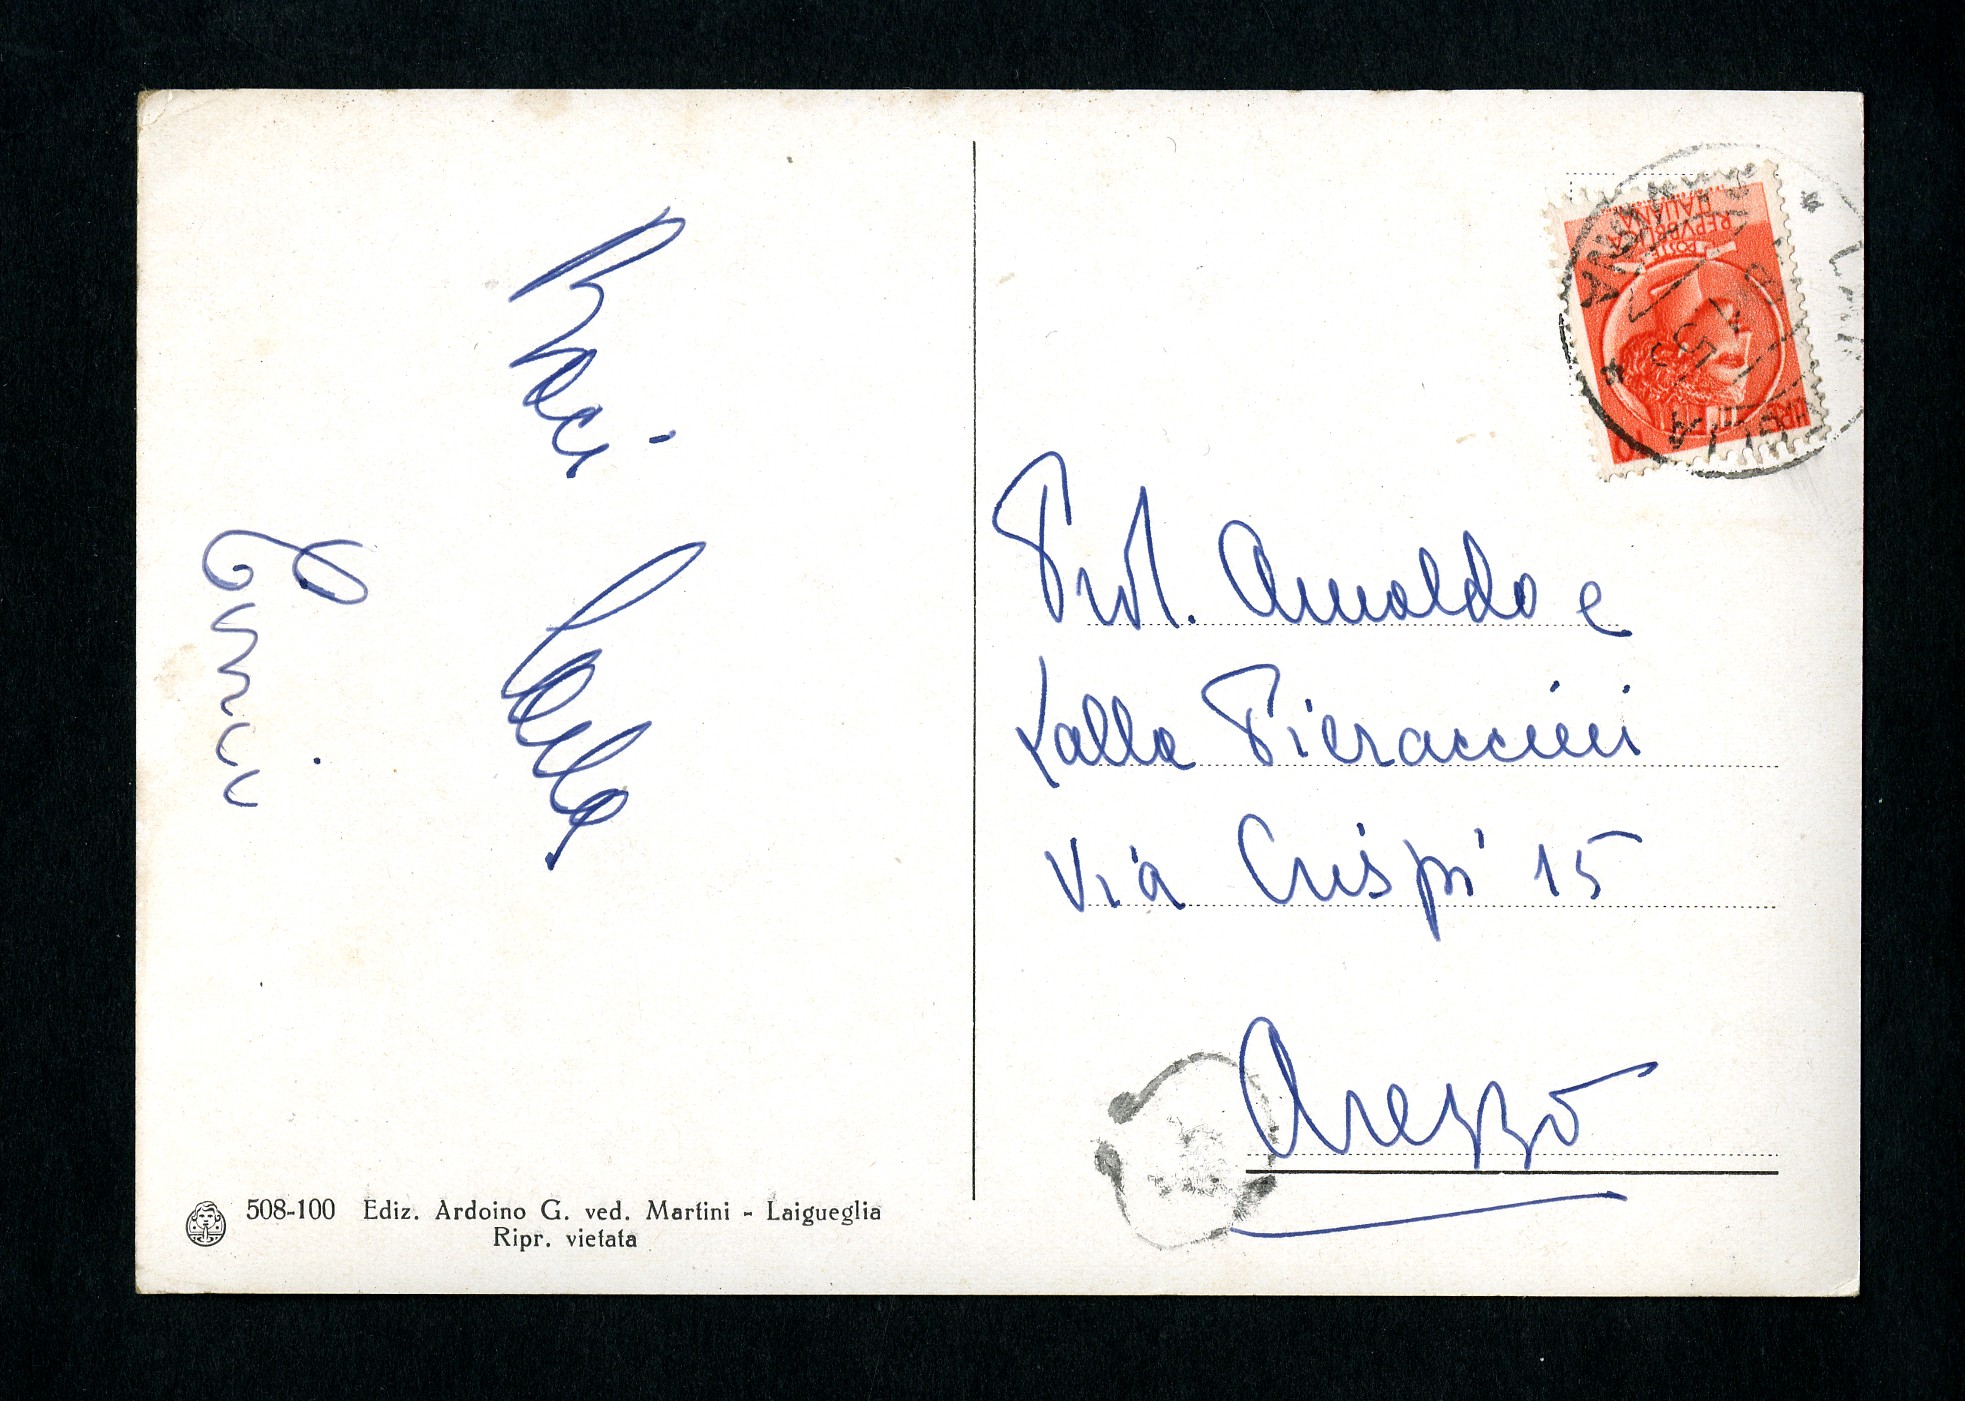 Baci
Lalla
Enrico
Prof. Arnaldo e
Lalla Pieraccini
Via Crispi 15
Arezzo
POSTE
REPVBBLICA
ITALIANA
LIRE
10
508-100 Ediz. Ardoino G. ved. Martini - Laigueglia
Ripr. vietata